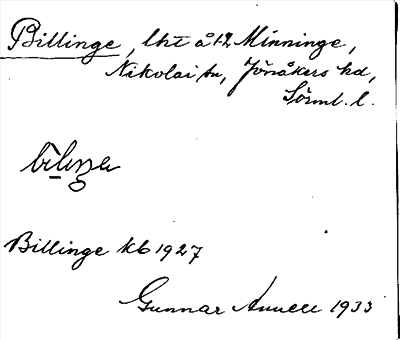 Billinge, lht å 12 Minninge,
Nikolai sn, Jönåkers hd,
Sörml. l.
Billinge kb 1927
Gunnar Annell 1933